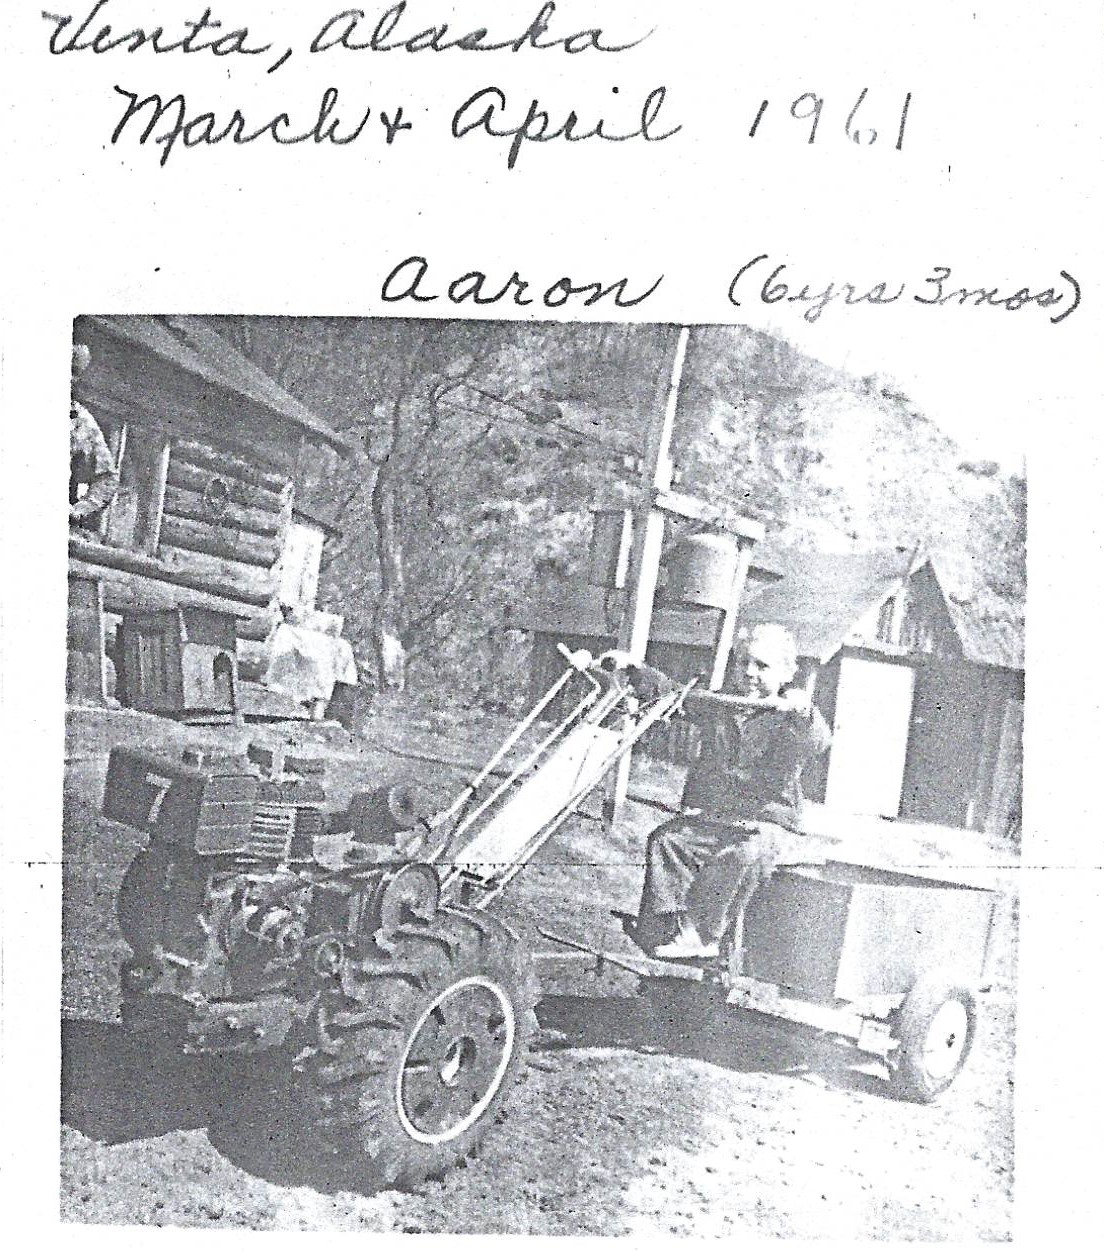 Venta, Alaska
March + April 1961
Aaron (6yrs 3mos)
7